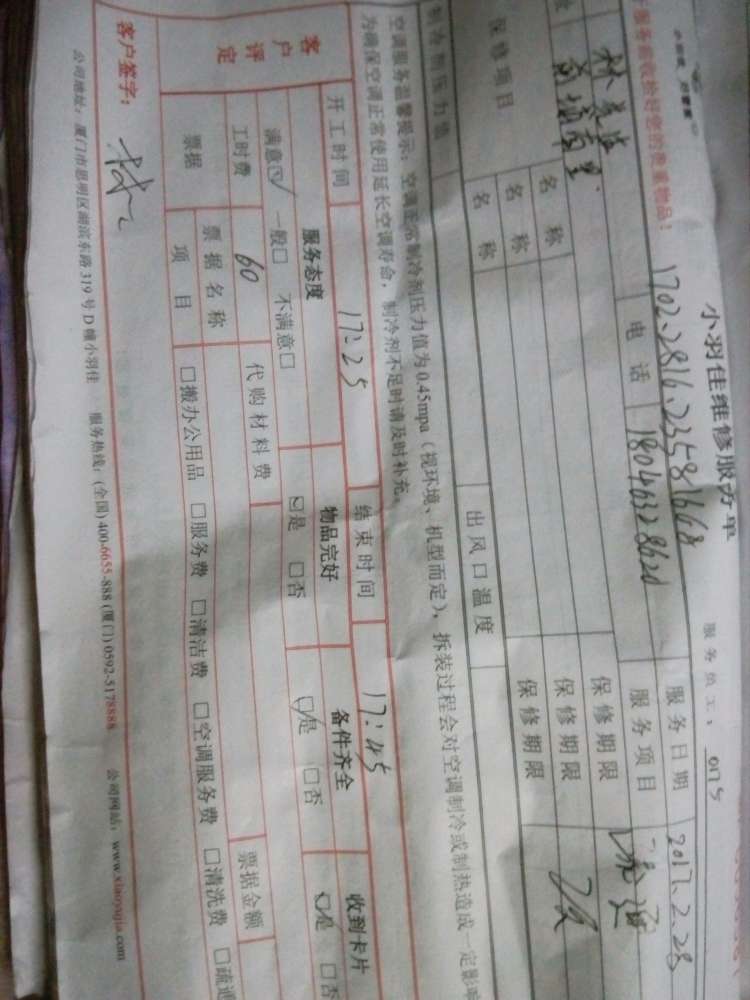 小羽佳维修服务单
服务员工：0175
服务前收拾好您的贵重物品！
1702.2816.23581668
服务日期 2017.2.28
电话 18046328620
服务项目 疏通
名称 保修期限
保修项目 名称 保修期限
名称 保修期限
制冷剂压力值 出风口温度
空调服务温馨提示：空调正常制冷剂压力值为0.45mpa（视环境、机型而定），拆装过程会对空调制冷或制热造成一定影响
为确保空调正常使用延长空调寿命，制冷剂不足时请及时补充。
开工时间 17:25 结束时间 17:45
客户评定 服务态度 物品完好 备件齐全 收到卡片
满意☑ 一般□ 不满意□ ☑是 □否 ☑是 □否 ☑是 □否
工时费 60 代购材料费 票据金额
票据 票据名称
项目 □搬办公用品 □服务费 □清洁费 □空调服务费 □清洗费 □疏通
客户签字：林
公司地址：厦门市思明区湖滨东路319号D幢小羽佳 服务热线：(全国)400-6655-888 (厦门)0592-5178888 公司网站：www.xiaoyujia.com